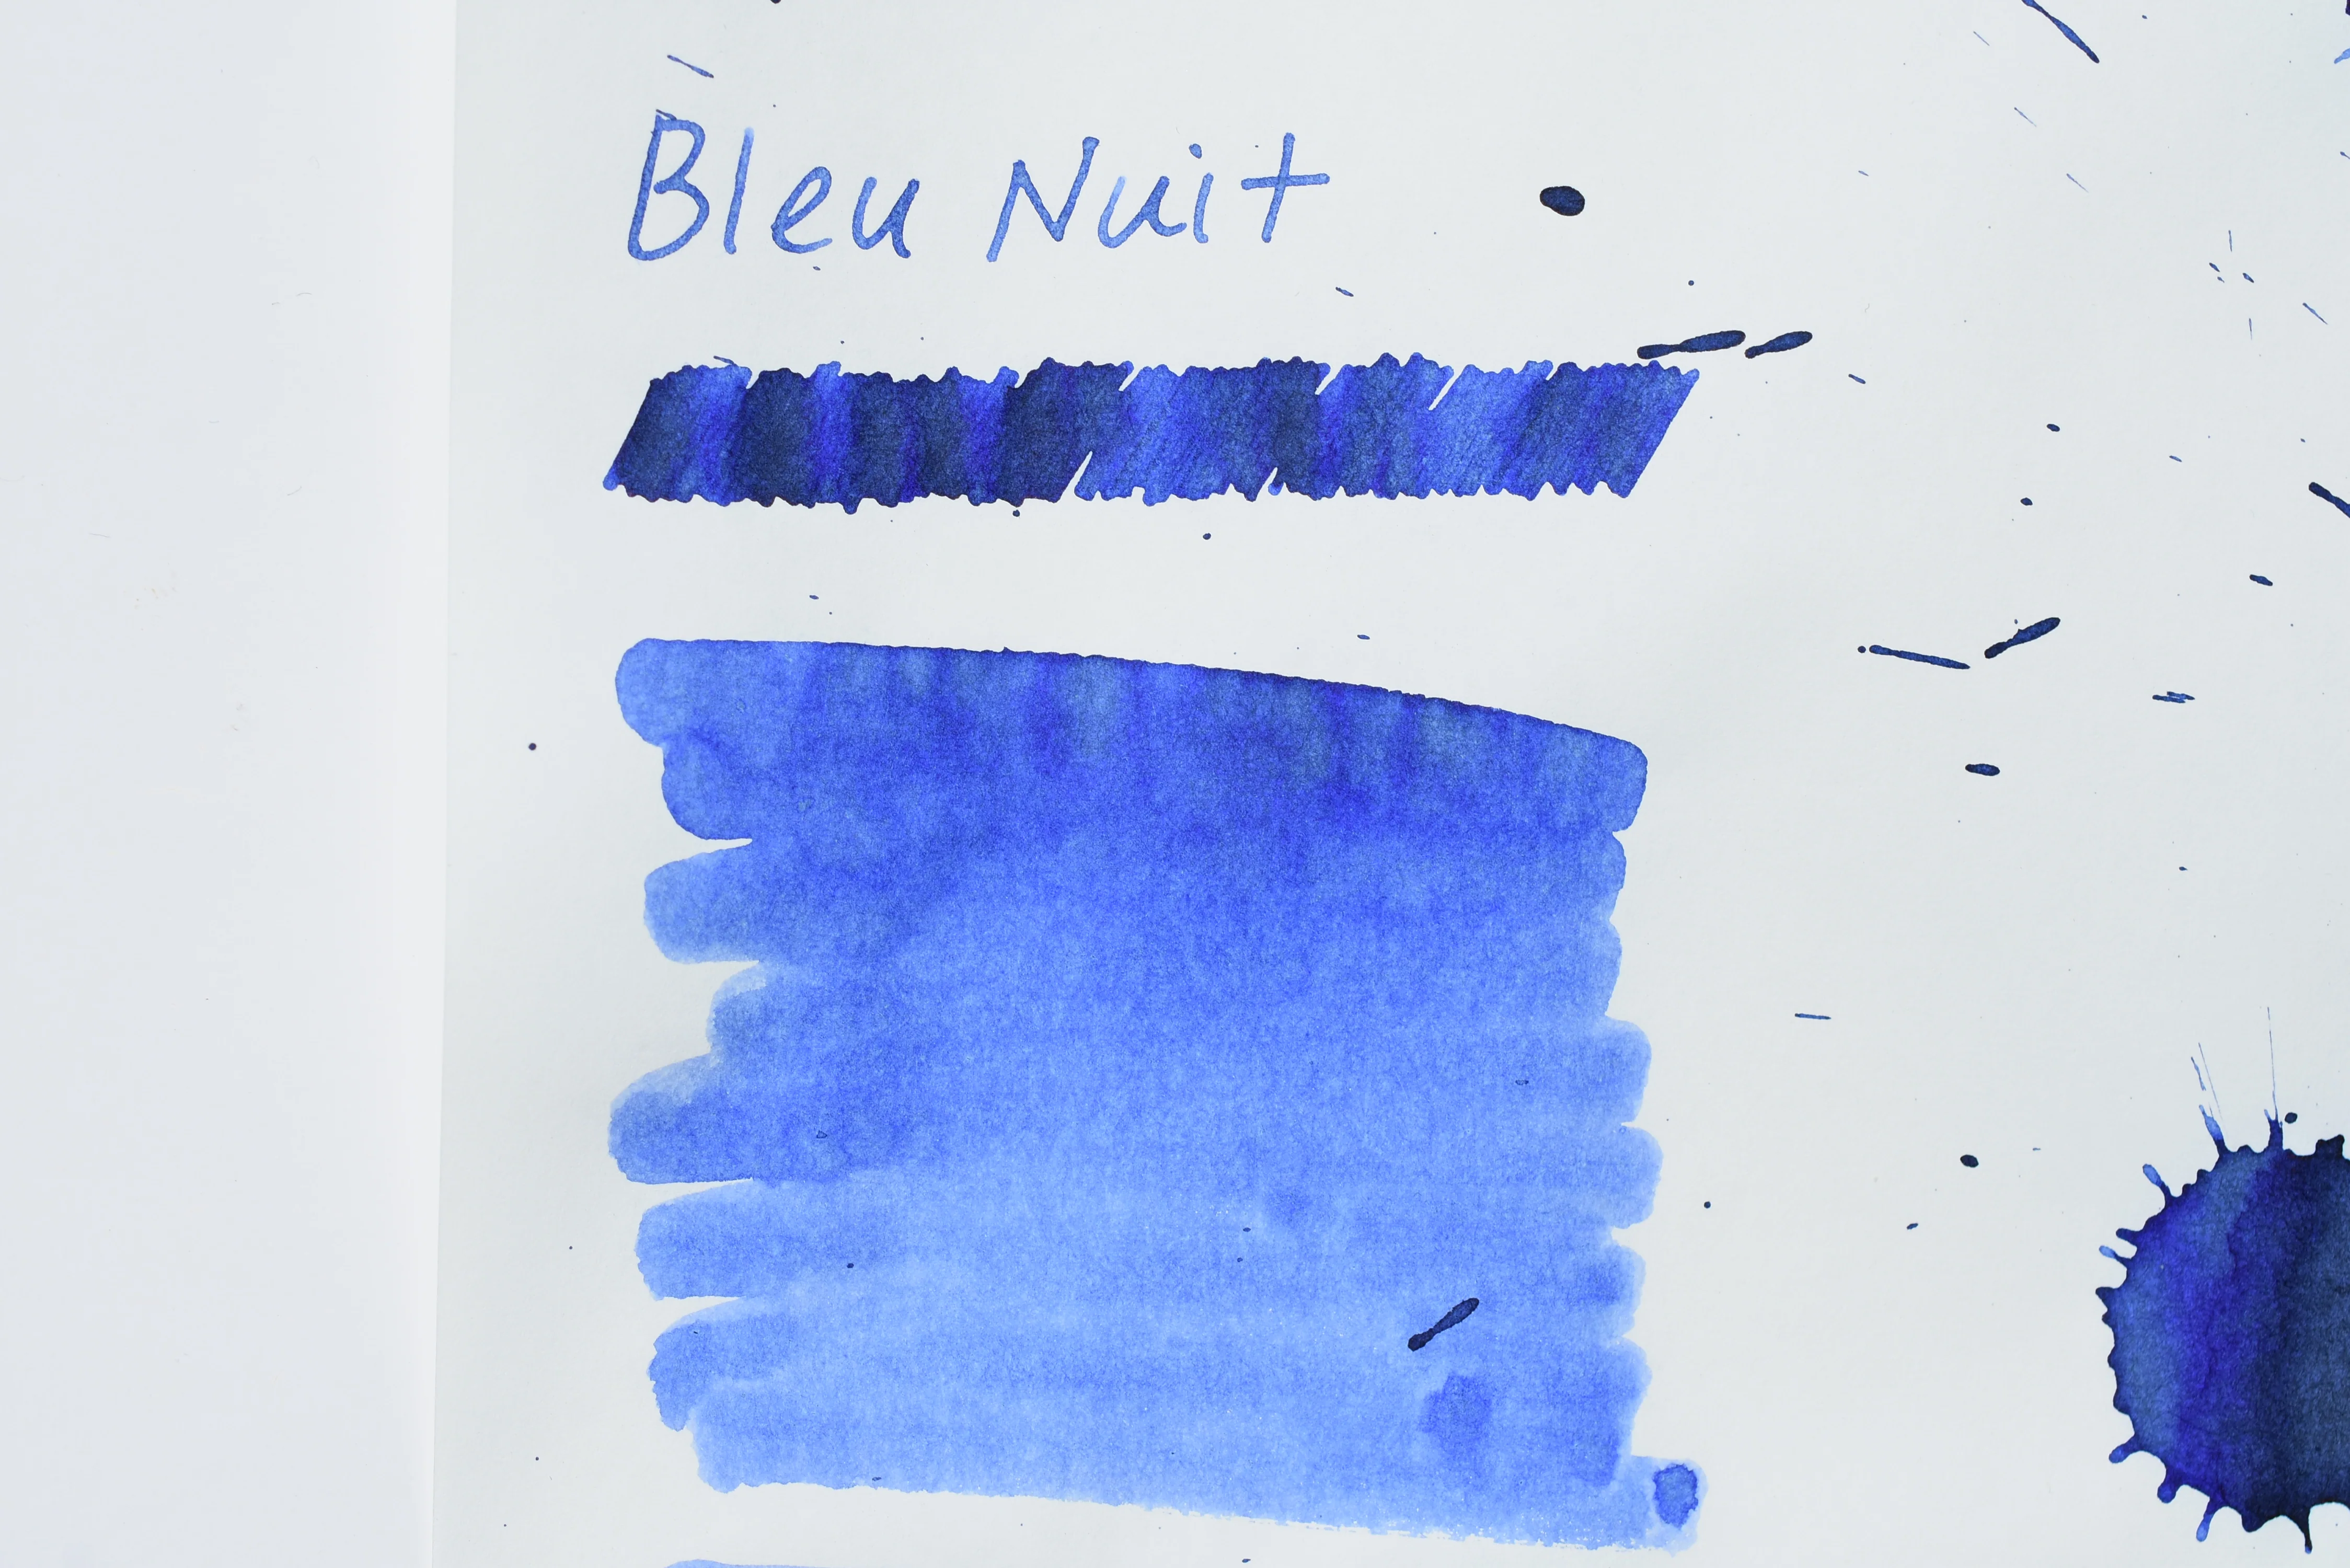 Bleu Nuit